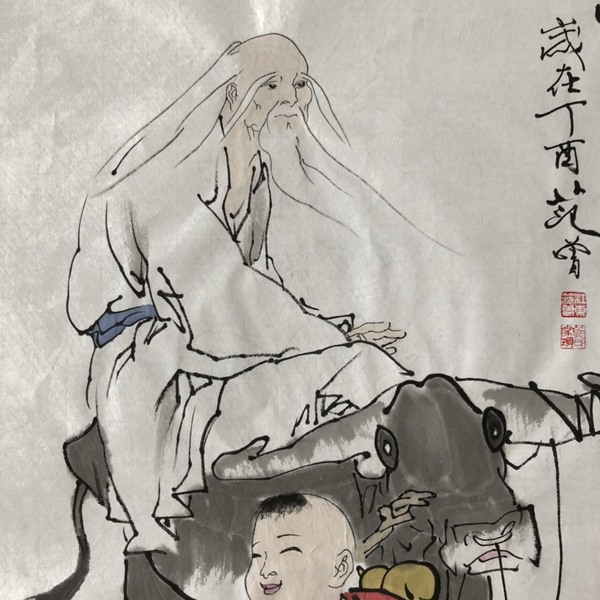 歲在丁酉范曾